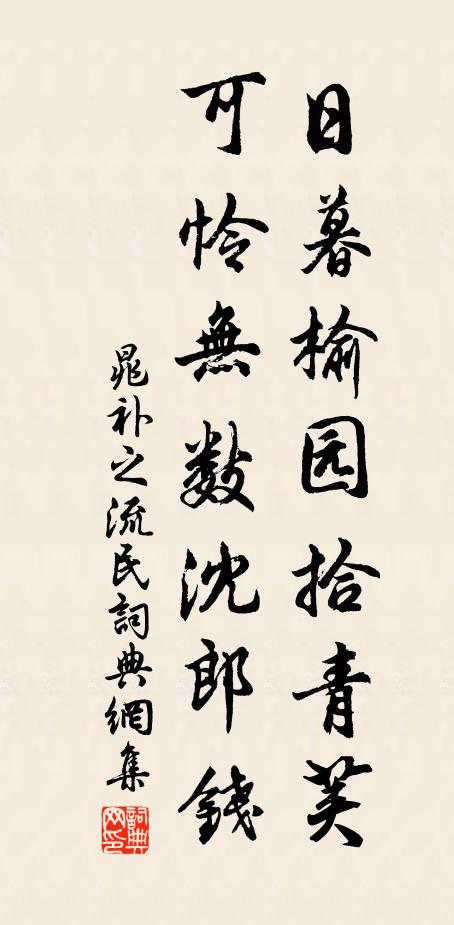 日暮榆园拾青荚
可怜無数沈郎錢
晁补之流民詞典網集
詞典网印